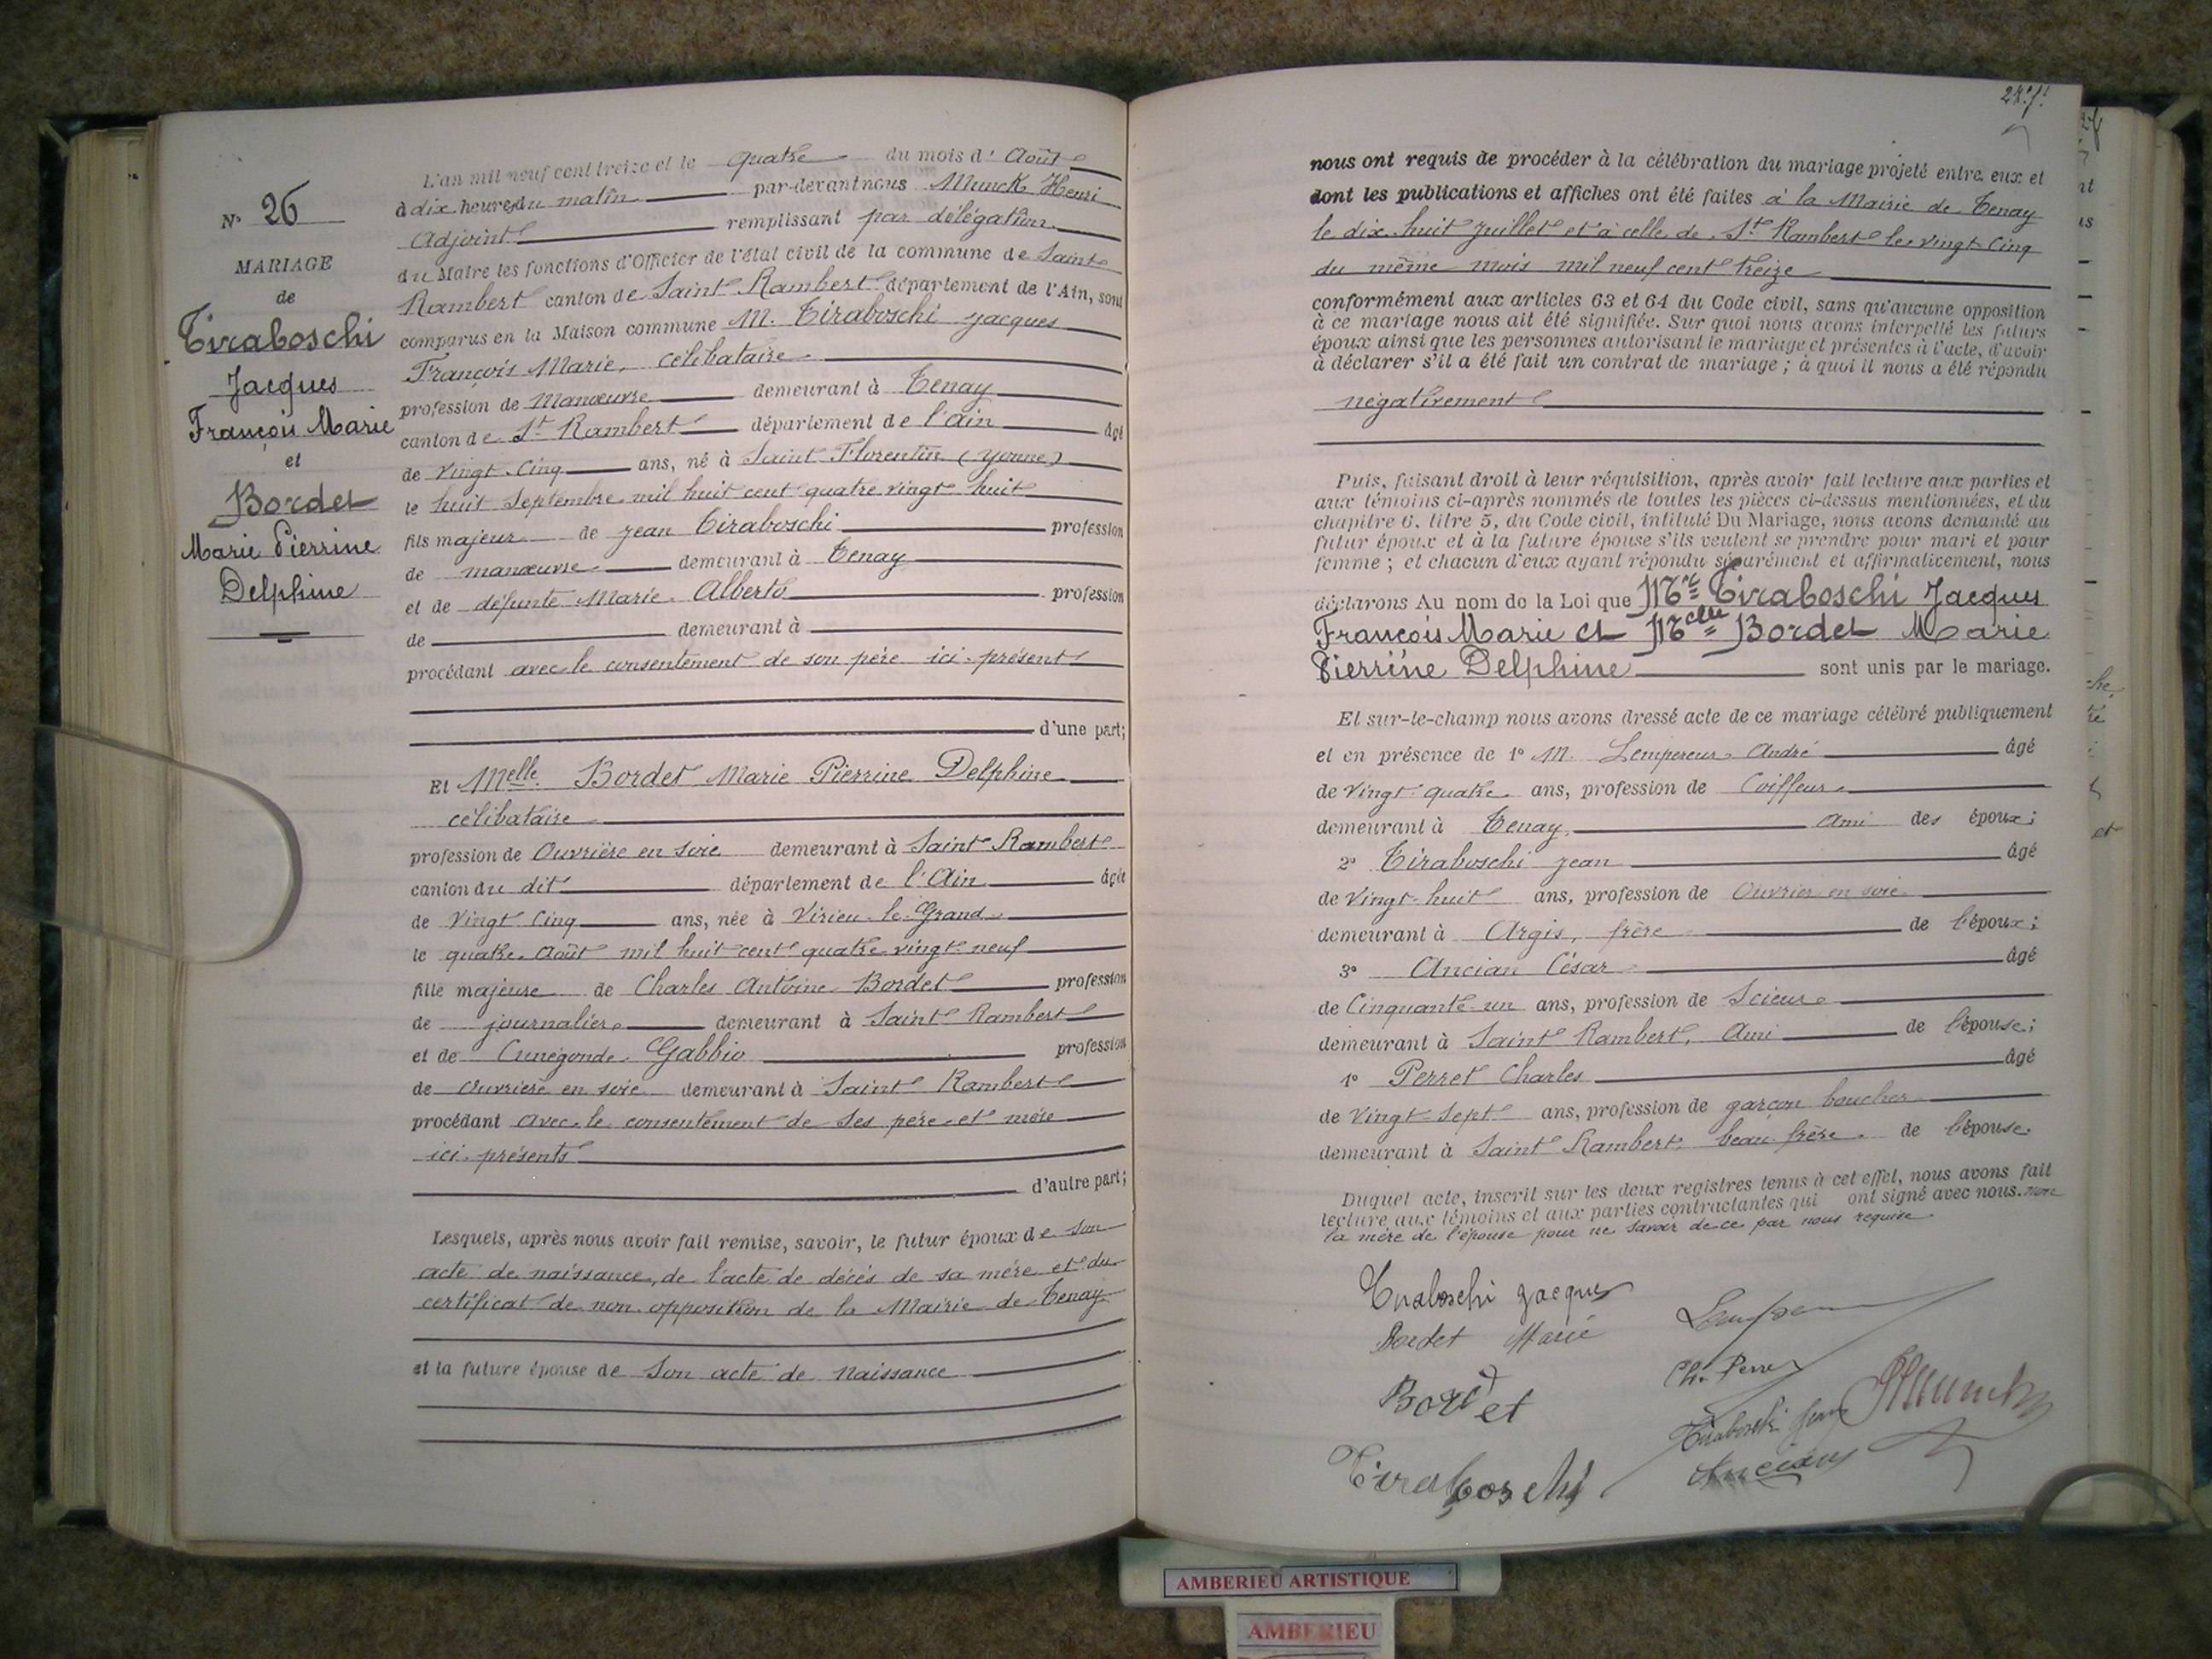 N° 26
MARIAGE
de
Tiraboschi
Jacques
François Marie
et
Bordet
Marie Pierrine
Delphine
L'an mil neuf cent treize et le quatre du mois d' Août
à dix heures du matin par-devant nous Munck Henri
Adjoint remplissant par délégation
du Maire les fonctions d'Officier de l'état civil de la commune de Saint
Rambert canton de Saint Rambert département de l'Ain, sont
comparus en la Maison commune M. Tiraboschi Jacques
François Marie, célibataire
profession de Manœuvre demeurant à Tenay
canton de St Rambert département de l'Ain âgé
de vingt-cinq ans, né à Saint Florentin (Yonne)
le huit Septembre mil huit cent quatre vingt huit
fils majeur de Jean Tiraboschi profession
de manœuvre demeurant à Tenay
et de défunte Marie Alberto profession
de demeurant à
procédant avec le consentement de son père ici présent
d'une part;
Et Melle Bordet Marie Pierrine Delphine
célibataire
profession de Ouvrière en soie demeurant à Saint Rambert
canton du dit département de l'Ain âgée
de Vingt Cinq ans, née à Virieu-le-Grand
le quatre Août mil huit cent quatre vingt neuf
fille majeure de Charles Antoine Bordet profession
de journalier demeurant à Saint Rambert
et de Cunégonde Gabbio profession
de Ouvrière en soie demeurant à Saint Rambert
procédant avec le consentement de ses père et mère
ici présents
d'autre part;
Lesquels, après nous avoir fait remise, savoir, le futur époux de son
acte de naissance, de l'acte de décès de sa mère et du
certificat de non opposition de la Mairie de Tenay
et la future épouse de son acte de naissance
nous ont requis de procéder à la célébration du mariage projeté entre eux et
dont les publications et affiches ont été faites à la Mairie de Tenay
le dix huit Juillet et à celle de St Rambert le vingt cinq
du même mois mil neuf cent treize
conformément aux articles 63 et 64 du Code civil, sans qu'aucune opposition
à ce mariage nous ait été signifiée. Sur quoi nous avons interpellé les futurs
époux ainsi que les personnes autorisant le mariage et présentes à l'acte, d'avoir
à déclarer s'il a été fait un contrat de mariage ; à quoi il nous a été répondu
négativement
Puis, faisant droit à leur réquisition, après avoir fait lecture aux parties et
aux témoins ci-après nommés de toutes les pièces ci-dessus mentionnées, et du
chapitre 6, titre 5, du Code civil, intitulé Du Mariage, nous avons demandé au
futur époux et à la future épouse s'ils veulent se prendre pour mari et pour
femme ; et chacun d'eux ayant répondu séparément et affirmativement, nous
déclarons Au nom de la Loi que Mr Tiraboschi Jacques
François Marie et Melle Bordet Marie
Pierrine Delphine sont unis par le mariage.
Et sur-le-champ nous avons dressé acte de ce mariage célébré publiquement
et en présence de 1° M. Lempereur André âgé
de vingt quatre ans, profession de Coiffeur
demeurant à Tenay, ami des époux;
2° Tiraboschi Jean âgé
de vingt-huit ans, profession de Ouvrier en soie
demeurant à Argis, frère de l'époux;
3° Ancian César âgé
de Cinquante-un ans, profession de Scieur
demeurant à Saint Rambert, Ami de l'épouse;
4° Perret Charles âgé
de Vingt-Sept ans, profession de garçon boucher
demeurant à Saint Rambert, beau-frère de l'épouse
Duquel acte, inscrit sur les deux registres tenus à cet effet, nous avons fait
lecture aux témoins et aux parties contractantes qui ont signé avec nous. non
la mère de l'épouse pour ne savoir de ce par nous requise
Tiraboschi Jacques
Bordet Marie
Bordet
Tiraboschi
Ch. Perret
Tiraboschi Jean
Ancian
HMunck
AMBERIEU ARTISTIQUE
AMBERIEU